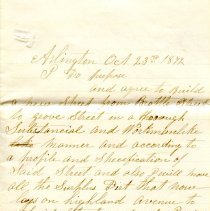 Arlington Oct 23rd 1872
I do propose
and agree to Build
a new Street from Brattle Street
to grove Street in a thorough
Substancial and Workmanlike
manner and according to
a profile and Specification of
Said Street and also I will move
all the Surplus Dirt that now
lays on highland avenue to